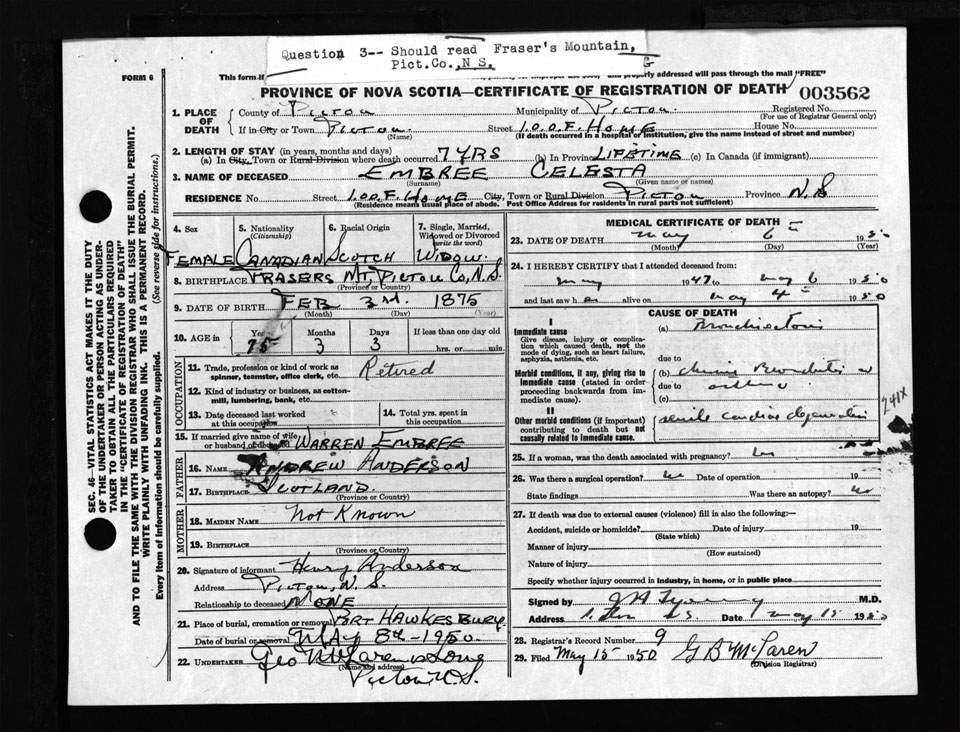 Question 3-- Should read Fraser's Mountain,
Pict.Co.,N S.
G
FORM 6
This form if
and properly addressed will pass through the mail "FREE"
PROVINCE OF NOVA SCOTIA—CERTIFICATE OF REGISTRATION OF DEATH 003562
1. PLACE OF DEATH
County of Pictou Municipality of Pictou. Registered No.
(For use of Registrar General only)
If in City or Town Pictou. Street I.O.O.F. HOME House No.
(Name) (If death occurred in a hospital or institution, give the name instead of street and number)
2. LENGTH OF STAY (in years, months and days)
(a) In City, Town or Rural Division where death occurred 7 YRS (b) In Province LIFETIME (c) In Canada (if immigrant)
3. NAME OF DECEASED EMBREE CELESTA
(Surname) (Given name or names)
RESIDENCE No. Street I.O.O.F. HOME City, Town or Rural Division PICTOU Province N.S
(Residence means usual place of abode. Post Office Address for residents in rural parts not sufficient)
4. Sex 5. Nationality (Citizenship) 6. Racial Origin 7. Single, Married, Widowed or Divorced (write the word)
FEMALE CANADIAN SCOTCH WIDOW.
8. BIRTHPLACE FRASERS MT, PICTOU CO, N.S.
(Province or Country)
9. DATE OF BIRTH FEB 3rd. 1875
(Month) (Day) (Year)
10. AGE in Years Months Days If less than one day old
75 3 3 hrs. or min.
OCCUPATION
11. Trade, profession or kind of work as spinner, teamster, office clerk, etc. Retired
12. Kind of industry or business, as cotton-mill, lumbering, bank, etc.
13. Date deceased last worked at this occupation
14. Total yrs. spent in this occupation
15. If married give name of wife or husband of deceased WARREN EMBREE
FATHER
16. NAME ANDREW ANDERSON
17. BIRTHPLACE SCOTLAND.
(Province or Country)
MOTHER
18. MAIDEN NAME Not Known
19. BIRTHPLACE
(Province or Country)
20. Signature of informant Henry Anderson
Address Pictou, N.S.
Relationship to deceased NONE
21. Place of burial, cremation or removal PORT HAWKESBURY
Date of burial or removal MAY 8th-1950.
22. UNDERTAKER Geo McLaren & Sons
(Name and address)
Pictou N.S.
MEDICAL CERTIFICATE OF DEATH
23. DATE OF DEATH May 6 1950
(Month) (Day) (Year)
24. I HEREBY CERTIFY that I attended deceased from
1947 to May 6 1950
and last saw h er alive on May 4 1950
CAUSE OF DEATH
I
Immediate cause
Give disease, injury or complication which caused death, not the mode of dying, such as heart failure, asphyxia, asthenia, etc.
(a)
due to
Morbid conditions, if any, giving rise to immediate cause (stated in order proceeding backwards from immediate cause).
(b)
due to
(c)
II
Other morbid conditions (if important) contributing to death but not causally related to immediate cause.
senile cardiac degeneration
241X
25. If a woman, was the death associated with pregnancy? no
26. Was there a surgical operation? no Date of operation 19
State findings Was there an autopsy? no
27. If death was due to external causes (violence) fill in also the following:—
Accident, suicide or homicide? Date of injury 19
(State which)
Manner of injury
(How sustained)
Nature of injury
Specify whether injury occurred in industry, in home, or in public place
Signed by M.D.
Address Date May 15 1950
28. Registrar's Record Number 9
29. Filed May 15 1950 G B McLaren
(Division Registrar)
SEC. 46—VITAL STATISTICS ACT MAKES IT THE DUTY
OF THE UNDERTAKER OR PERSON ACTING AS UNDER-
TAKER TO OBTAIN ALL THE PARTICULARS REQUIRED
IN THE "CERTIFICATE OF REGISTRATION OF DEATH"
AND TO FILE THE SAME WITH THE DIVISION REGISTRAR WHO SHALL ISSUE THE BURIAL PERMIT.
WRITE PLAINLY WITH UNFADING INK. THIS IS A PERMANENT RECORD.
Every item of information should be carefully supplied. (See reverse side for instructions.)